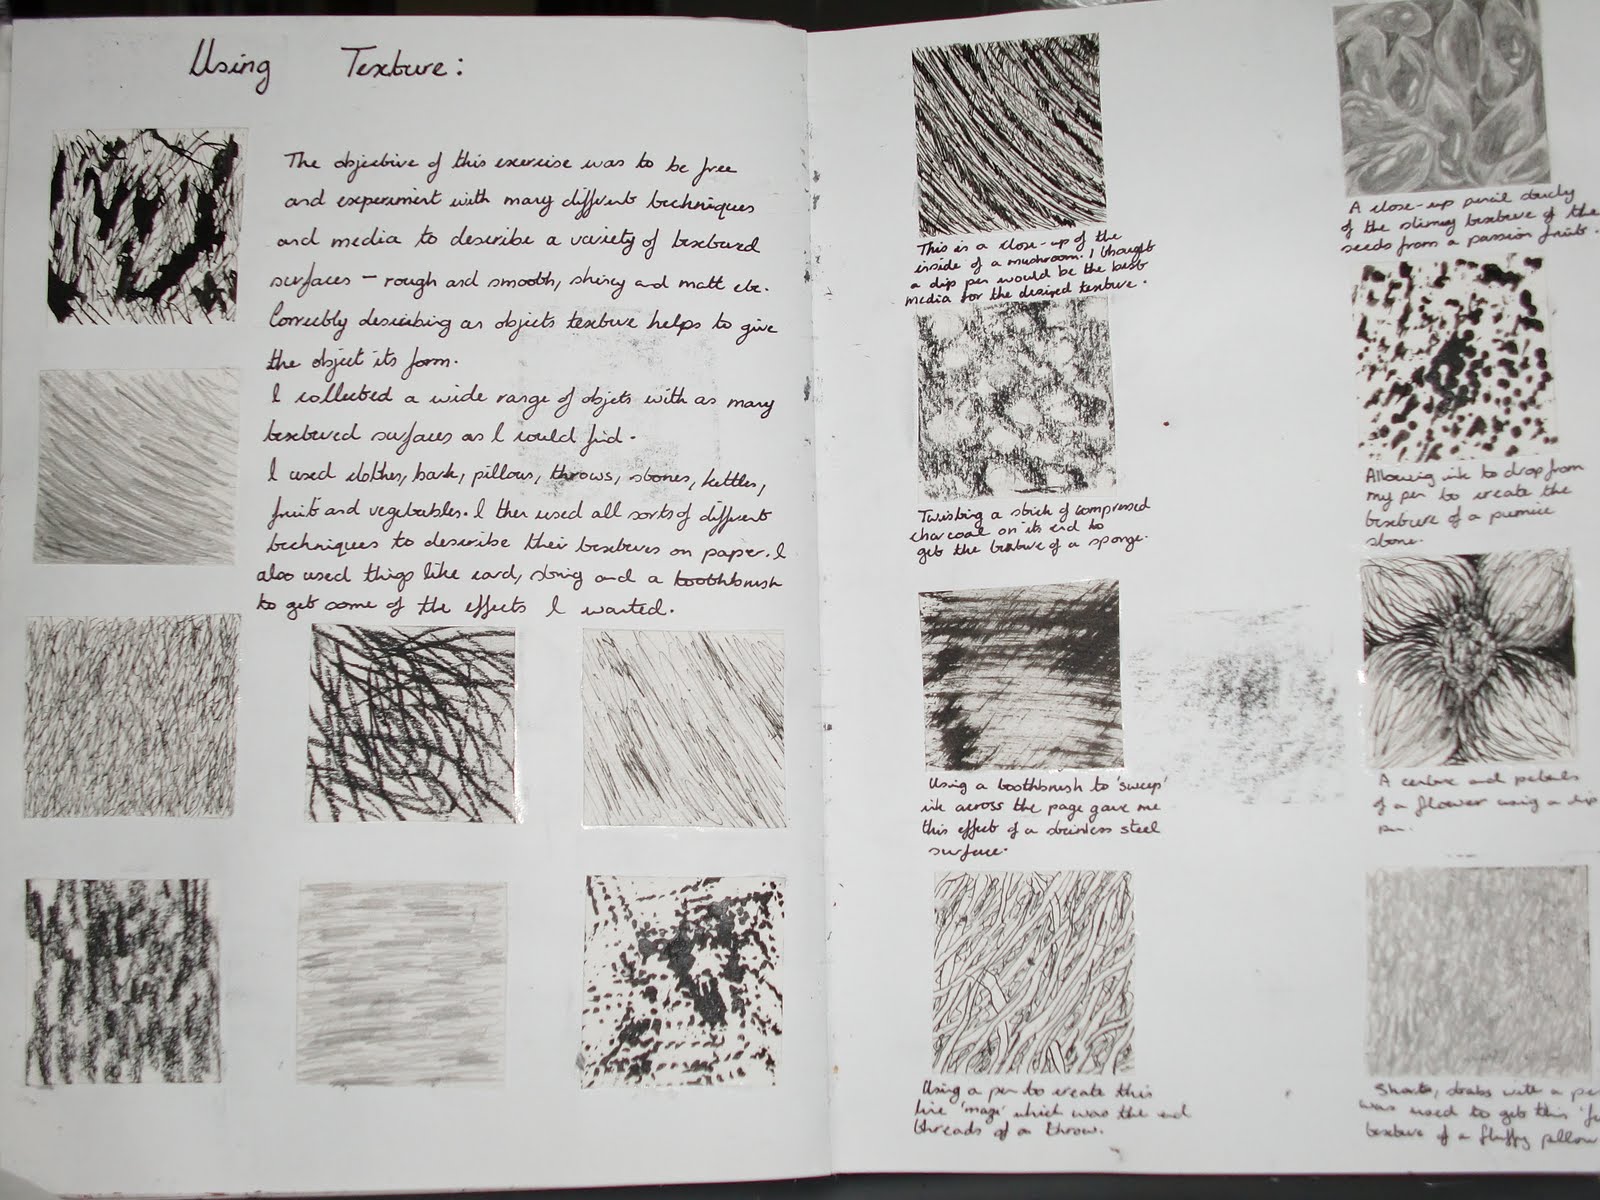 Using Texture:
The objective of this exercise was to be free
and experiment with many different techniques
and media to describe a variety of textured
surfaces – rough and smooth, shiny and matt etc.
Correctly describing an objects texture helps to give
the object its form.
I collected a wide range of objets with as many
textured surfaces as I could find.
I used clothes, bark, pillows, throws, stones, kettles,
fruit and vegetables. I then used all sorts of different
techniques to describe their textures on paper. I
also used things like card, string and a toothbrush
to get some of the effects I wanted.
This is a close-up of the
inside of a mushroom. I thought
a dip pen would be the best
media for the desired texture.
Twisting a stick of compressed
charcoal on its end to
get the texture of a sponge.
Using a toothbrush to 'sweep'
ink across the page gave me
this effect of a stainless steel
surface.
Using a pen to create this
line 'maze' which was the end
threads of a throw.
A close-up pencil study
of the slimey texture of the
seeds from a passion fruit.
Allowing ink to drop from
my pen to create the
texture of a pumice
stone.
A centre and petals
of a flower using a dip
pen.
Short, stabs with a
was used to get this
texture of a fluffy pillow